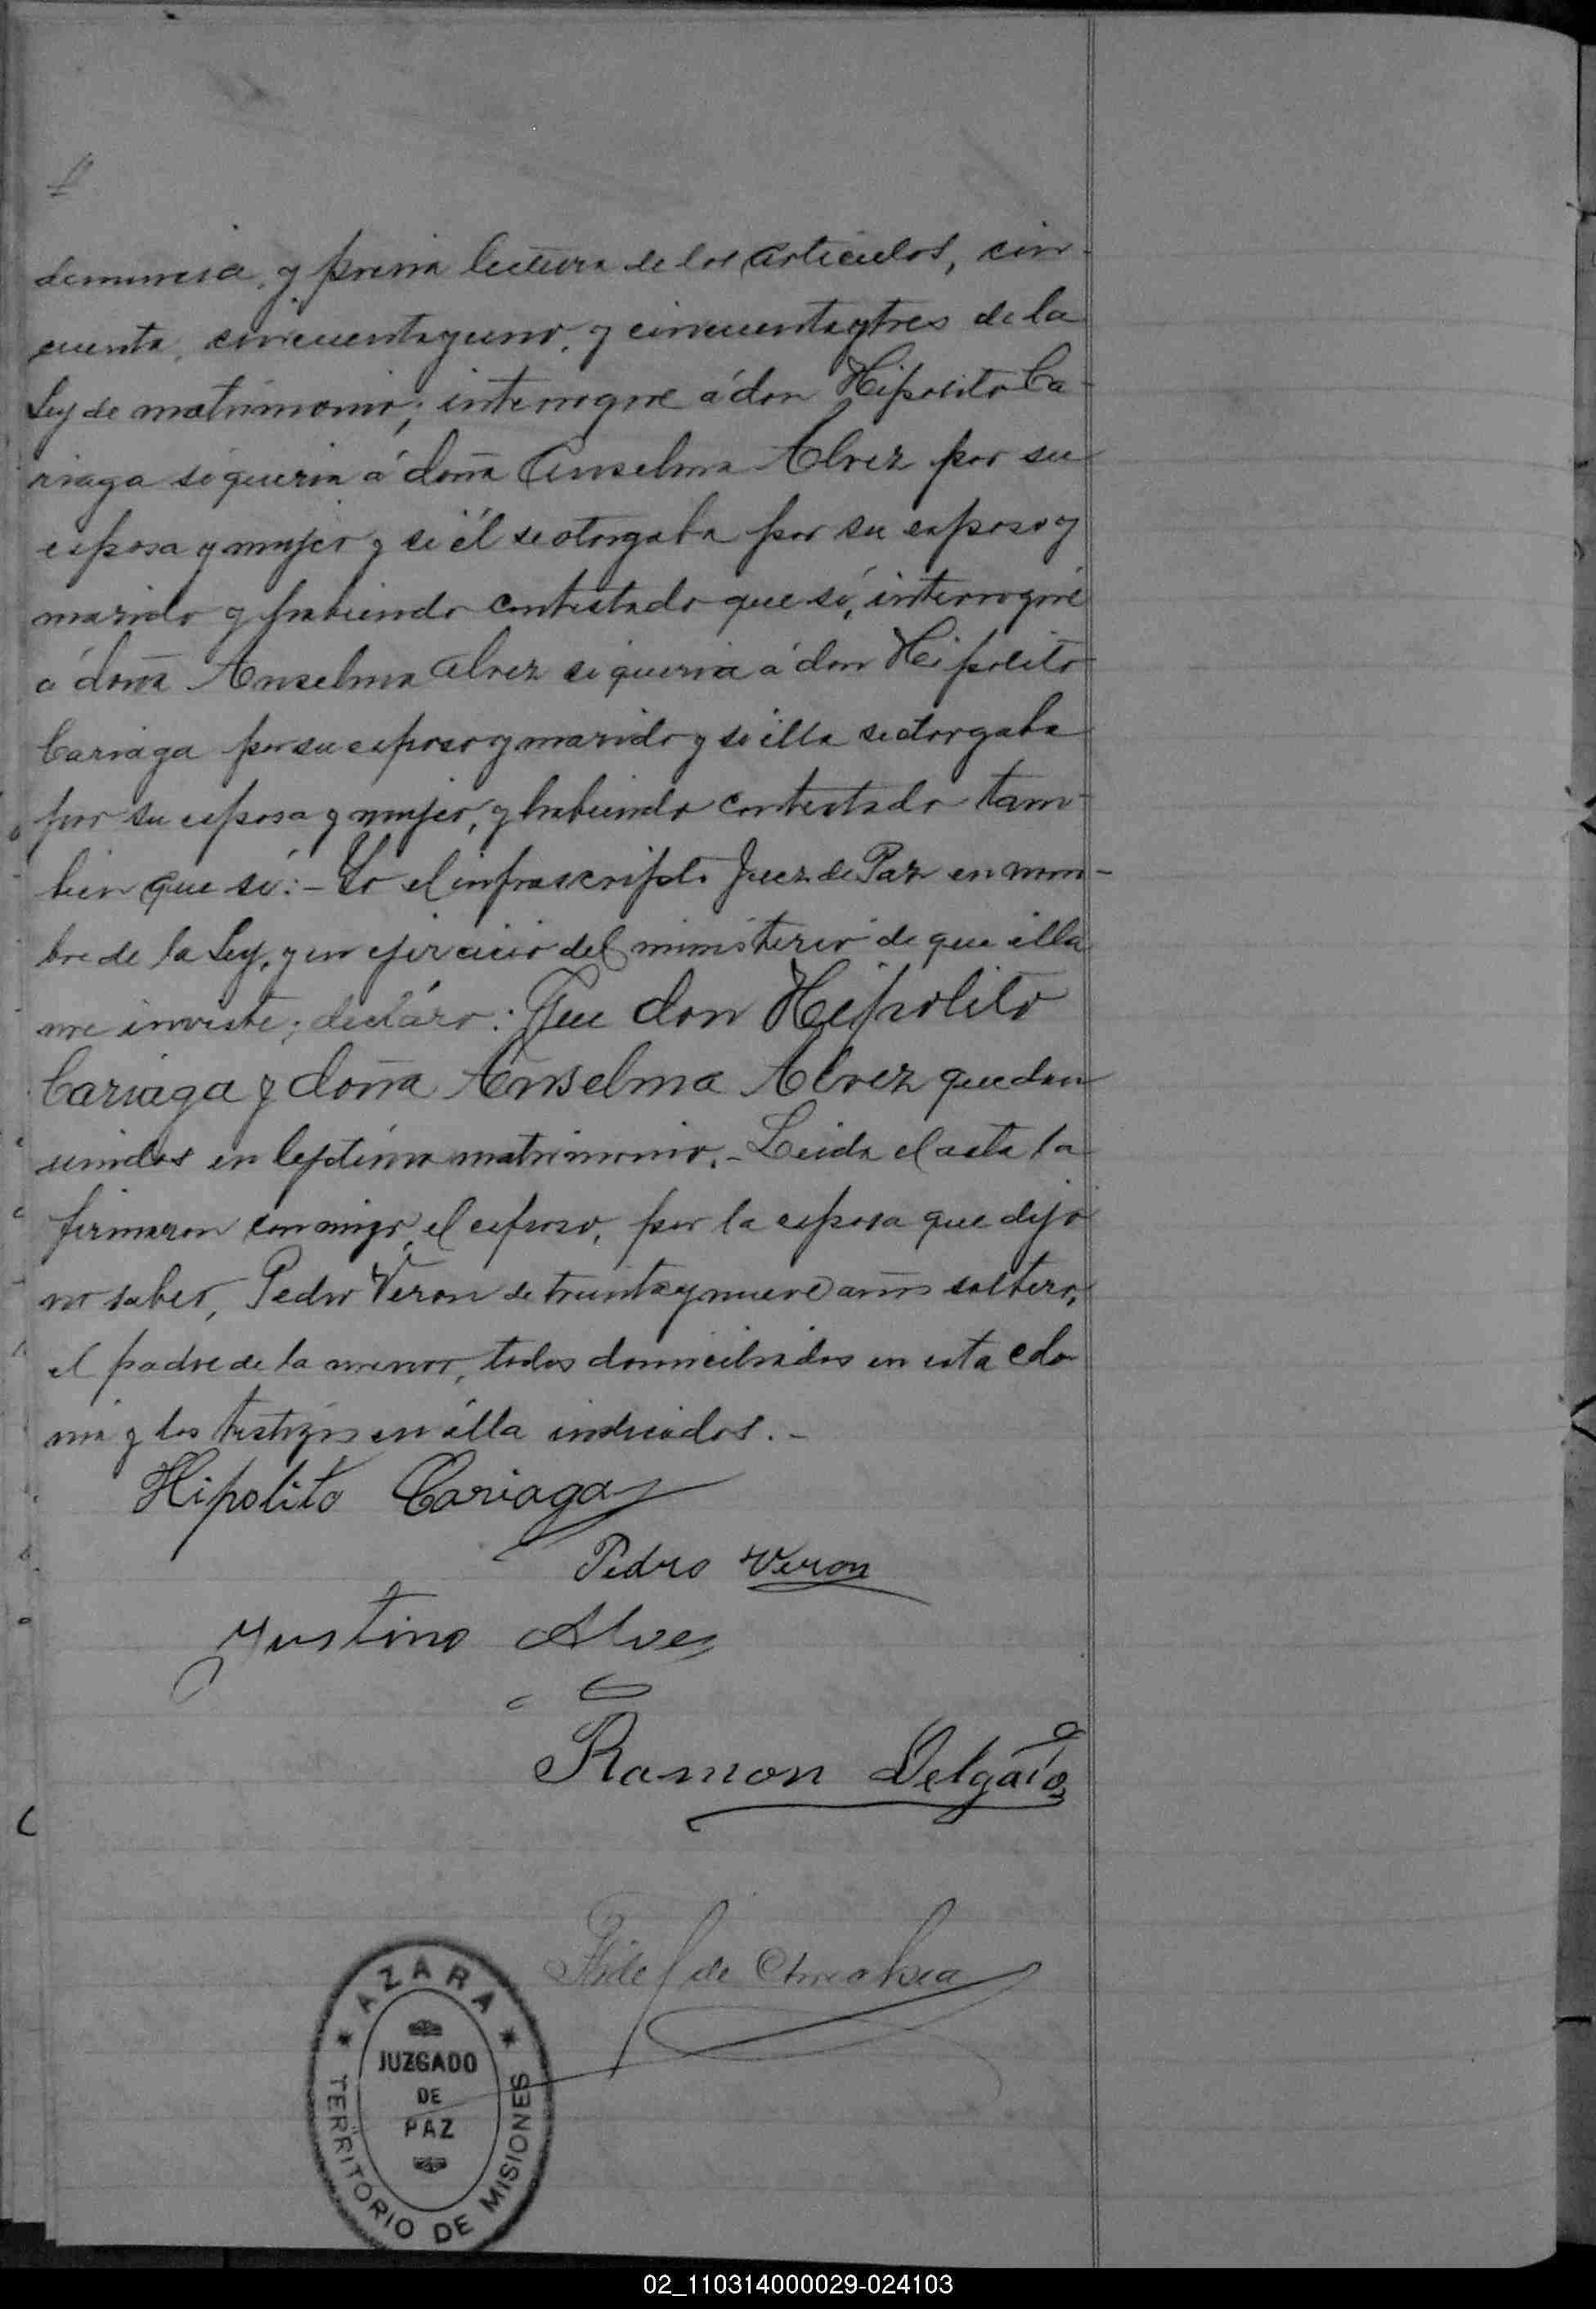 denuncia, y previa lectura de los articulos, cin-
cuenta, cincuentayuno, y cincuentaytres de la
Ley de matrimonio; interrogué á don Hipolito Ca-
riaga si queria á doña Anselma Alvez por su
esposa y mujer y si él se otorgaba por su esposo y
marido y habiendo contestado que sí, interrogué
á doña Anselma Alvez si queria á don Hipolito
Cariaga por su esposo y marido y si élla se otorgaba
por su esposa y mujer, y habiendo contestado tam-
bien que sí:- Yo el infrascripto Juez de Paz en nom-
bre de la Ley, y en ejercicio del ministerio de que élla
me inviste; decláro: Que don Hipolito
Cariaga y doña Anselma Alvez quedan
unidos en legítimo matrimonio.- Leida el acta la
firmaron conmigo, el esposo, por la esposa que dijo
no saber, Pedro Veron de treintaynueve años soltero,
el padre de la menor, todos domiciliados en esta colo
nia y los testigos en élla indicados.-
Hipolito Cariaga
Pedro Veron
Justino Alves
Ramon Delgado
de
AZARA
JUZGADO
DE
PAZ
TERRITORIO DE MISIONES
02_110314000029-024103